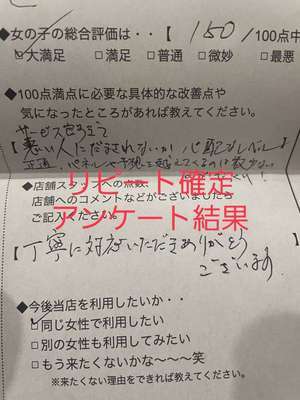 ◆女の子の総合評価は・・【 150 /100点中
☑大満足 □満足 □普通 □微妙 □最悪
◆100点満点に必要な具体的な改善点や
気になったところがあれば教えてください。
サービス
【悪い人にだまされないか心配なレベル
正直、パネルや予想を超えてくるのは
◆店舗スタッフへの点数、
店舗へのコメントなどがございましたら
ご記入ください。
リピート確定
アンケート結果
【丁寧に対応いただきありがとう
ございます。
◆今後当店を利用したいか・・
☑同じ女性で利用したい
□別の女性も利用してみたい
□もう来たくないかな〜〜〜笑
※来たくない理由をできれば教えてください。